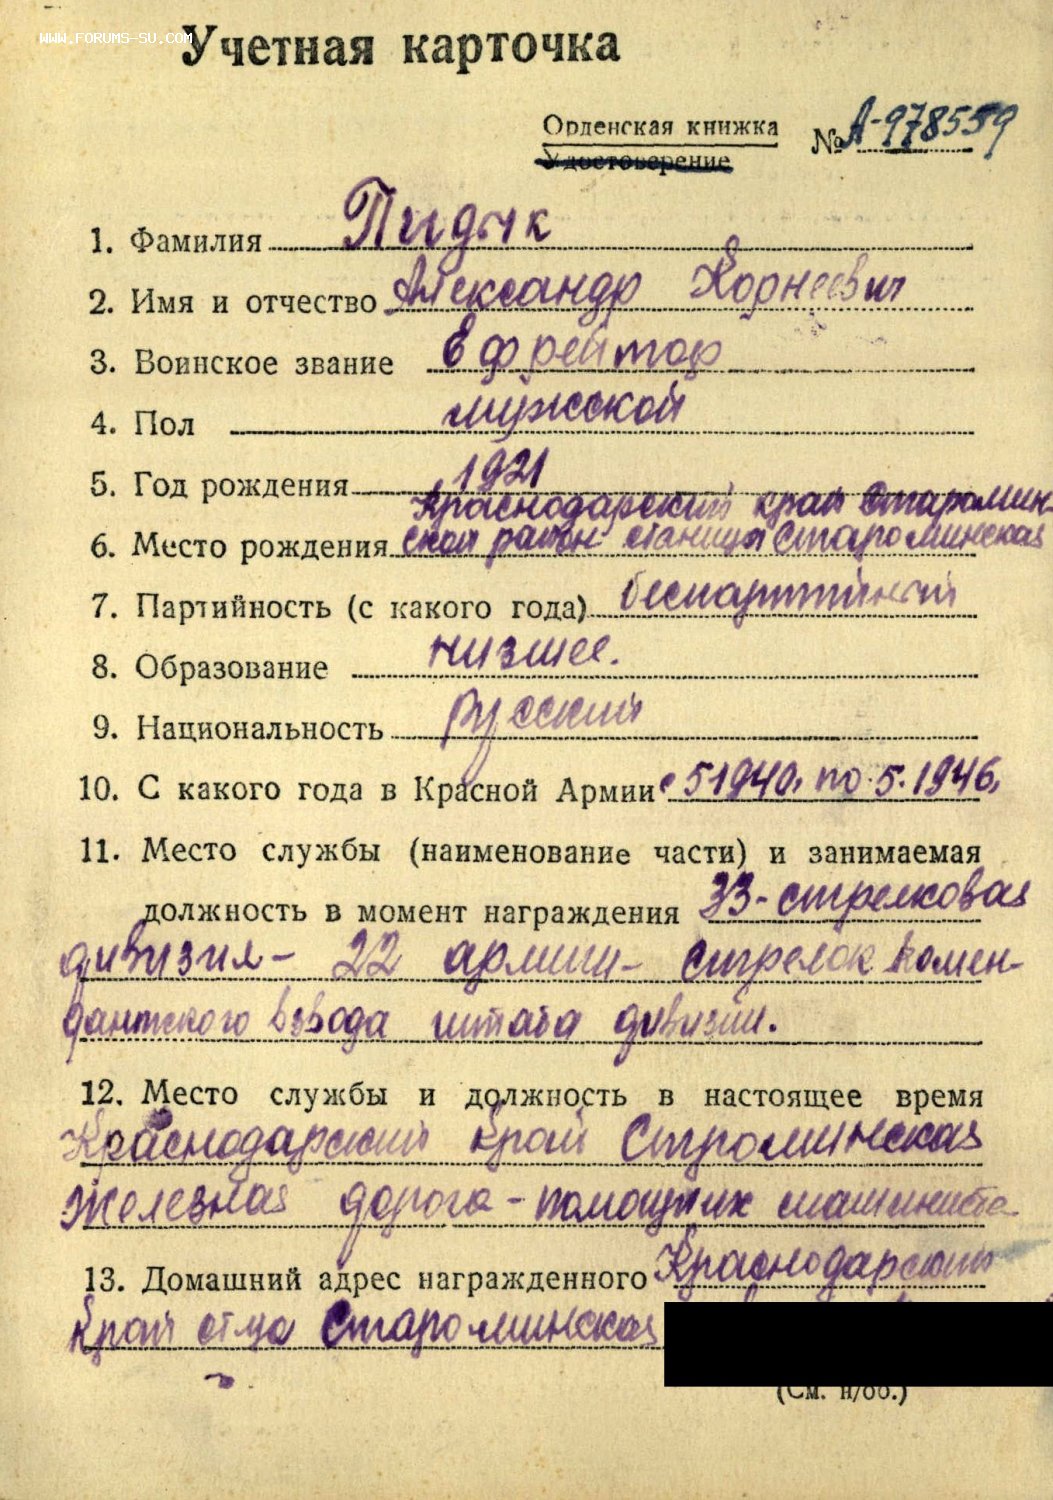 WWW.FORUMS-SU.COM
Учетная карточка
Орденская книжка № А-978559
Удостоверение
1. Фамилия Пидык
2. Имя и отчество Александр Корнеевич
3. Воинское звание Ефрейтор
4. Пол мужской
5. Год рождения 1921
Краснодарский край Старомин-
6. Место рождения ской район станица Староминская
7. Партийность (с какого года) беспартийный
8. Образование низшее.
9. Национальность русский
10. С какого года в Красной Армии с 5 1940, по 5. 1946,
11. Место службы (наименование части) и занимаемая
должность в момент награждения 33-стрелковая
дивизия- 22 армии- стрелок комен-
дантского взвода штаба дивизии.
12. Место службы и должность в настоящее время
Краснодарский край Строминская
железная дорога - помощник машиниста
13. Домашний адрес награжденного Краснодарский
край ст-ца Староминская
(См. н/об.)